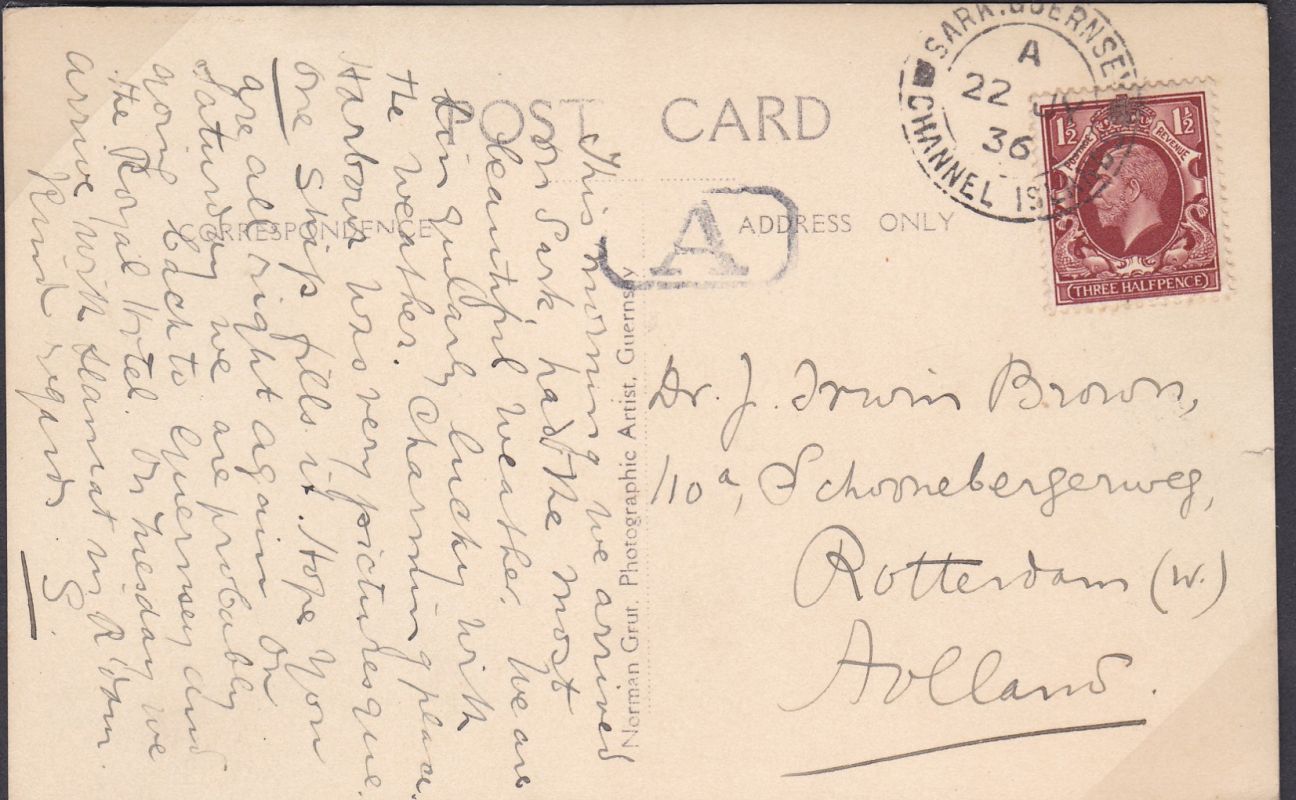 POST CARD
CORRESPONDENCE
ADDRESS ONLY
SARK. GUERNSEY
CHANNEL ISLANDS
A
22
36
1½ 1½
POSTAGE REVENUE
THREE HALFPENCE
A
Norman Grut, Photographic Artist, Guernsey
This morning we arrived
on Sark, had the most
beautiful weather. We are
singularly lucky with
the weather. Charming place.
Harbour was very picturesque.
One ship fills it. Hope you
are all right again. On
Saturday we are probably
going back to Guernsey and
the Royal Hotel. On Tuesday we
arrive with in R'dam.
Kind regards
S.
Dr. J. Irwin Brown,
110a, Schoonebergerweg,
Rotterdam (W.)
Holland.